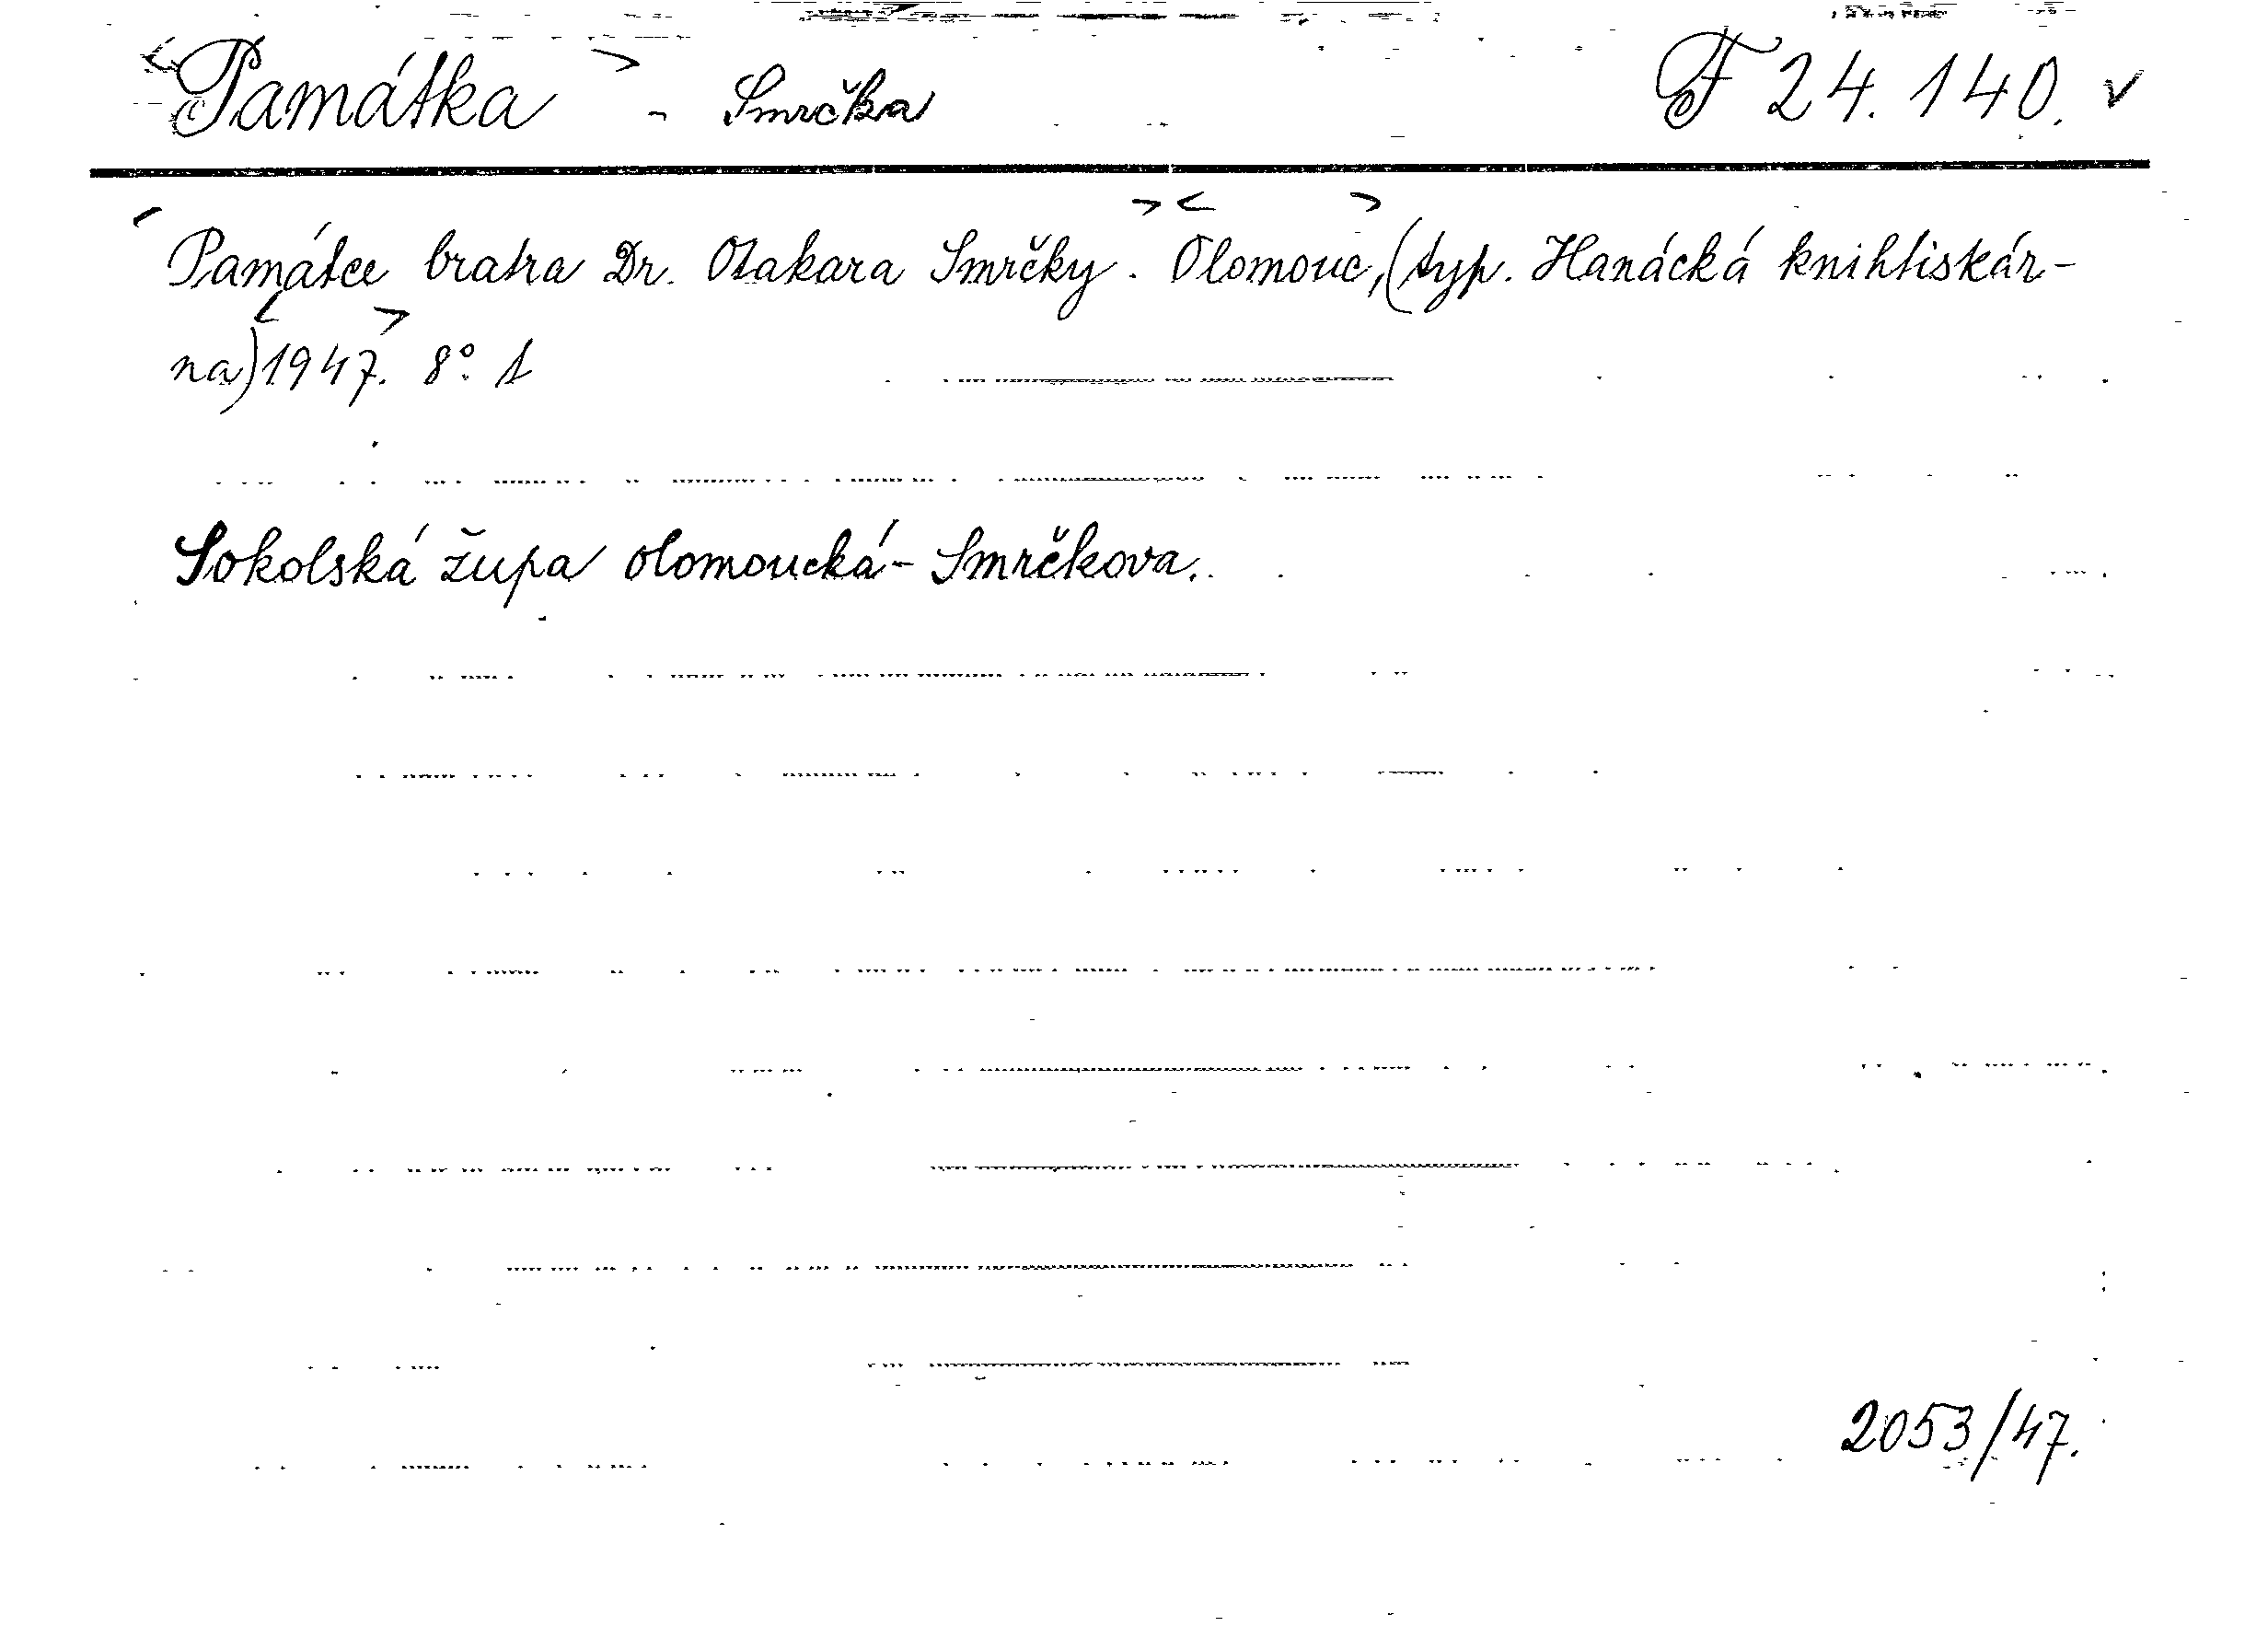 Památka - Smrčka F 24.140. v
Památce bratra Dr. Otakara Smrčky. Olomouc, (typ. Hanácká knihtiskár-
na) 1947. 8°.
Sokolská župa olomoucká - Smrčkova.
2053/47.